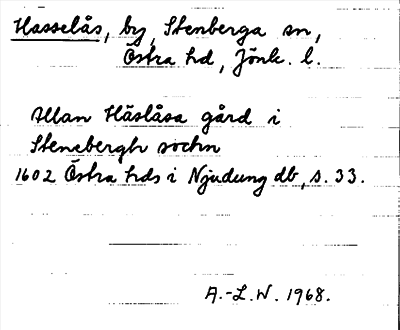 Hasselås, by, Stenberga sn,
Östra hd, Jönk. l.
Allan Håslåsa gård i
Stenebergh sochn
1602 Östra hds i Njudung db, s. 33.
A.-L.W. 1968.